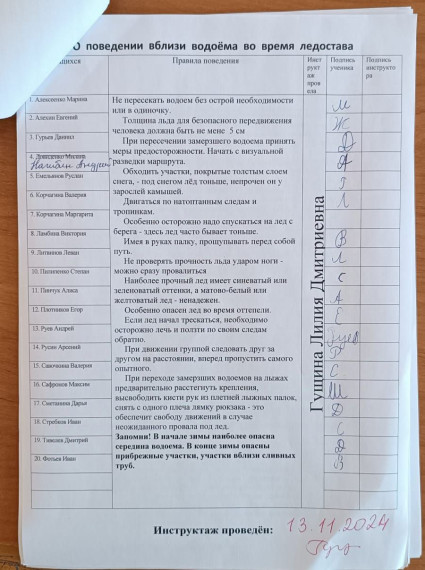 О поведении вблизи водоёма во время ледостава
щихся
Правила поведения
Инст
рукт
аж
пров
ела
Подпись
ученика
Подпись
инструкто
ра
1. Алексеенко Марина
2. Алехин Евгений
3. Гурьев Даниил
5. Емельянов Руслан
6. Корчагина Валерия
7. Корчагина Маргарита
8. Ламбина Виктория
9. Литвинов Леван
10. Пилипенко Степан
11. Пинчук Алиса
12. Плотников Егор
13. Руев Андрей
14. Русин Арсений
15. Савочкина Валерия
16. Сафронов Максим
17. Сметанина Дарья
18. Стребков Иван
19. Тимолюк Дмитрий
20. Фотьев Иван
Не пересекать водоем без острой необходимости
или в одиночку.
Толщина льда для безопасного передвижения
человека должна быть не мене 5 см
При пересечении замерзшего водоема принять
меры предосторожности. Начать с визуальной
разведки маршрута.
Обходить участки, покрытые толстым слоем
снега, - под снегом лёд тоньше, непрочен он у
зарослей камышей.
Двигаться по натоптанным следам и
тропинкам.
Особенно осторожно надо спускаться на лед с
берега - здесь лед часто бывает тоньше.
Имея в руках палку, прощупывать перед собой
путь.
Не проверять прочность льда ударом ноги -
можно сразу провалиться
Наиболее прочный лед имеет синеватый или
зеленоватый оттенки, а матово-белый или
желтоватый лед - ненадежен.
Особенно опасен лед во время оттепели.
Если лед начал трескаться, необходимо
осторожно лечь и ползти по своим следам
обратно.
При движении группой следовать друг за
другом на расстоянии, вперед пропустить самого
опытного.
При переходе замерзших водоемов на лыжах
предварительно расстегнуть крепления,
высвободить кисти рук из петлей лыжных палок,
снять с одного плеча лямку рюкзака - это
обеспечит свободу движений в случае
неожиданного провала под лед.
Запомни! В начале зимы наиболее опасна
середина водоема. В конце зимы опасны
прибрежные участки, участки вблизи сливных
труб.
Гущина Лилия Дмитриевна
М
Ж
Д
А
Г
Л
В
Л
С
А
Е
Р
С
Ш
Д
С
Д
В
Инструктаж проведён: 13.11.2024